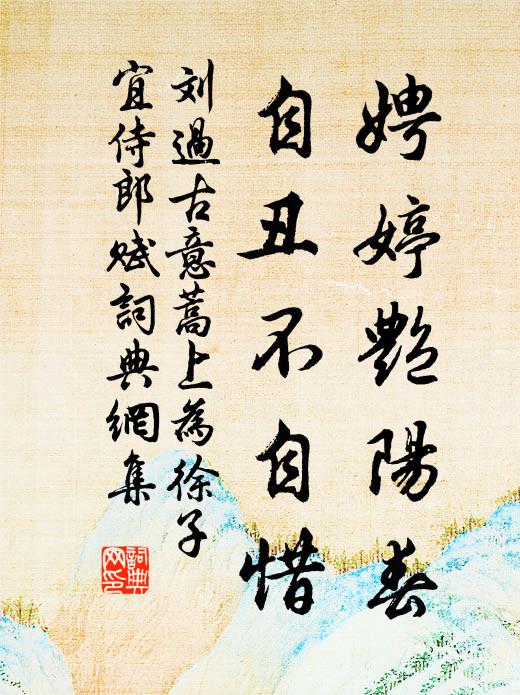 娉婷艷陽春
自丑不自惜
刘過古意蒿上為徐子
宜侍郎赋詞典網集
詞典
网印